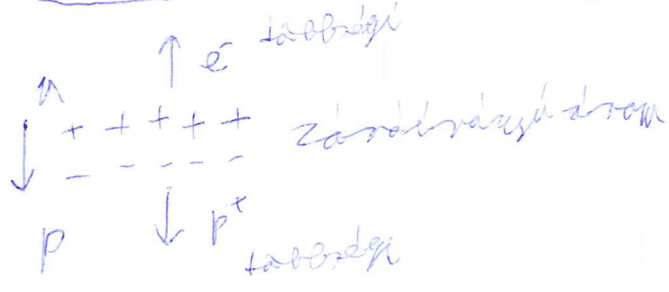 é többségi
n
+ + + + + záróirányú áram
- - - - -
p p⁺
többségi